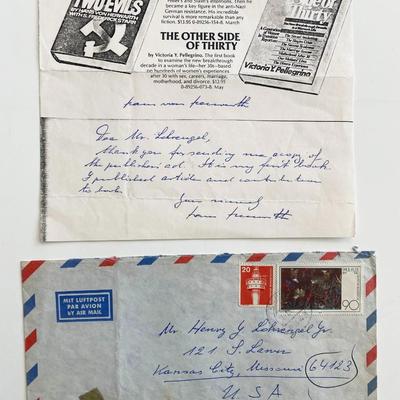 TWO EVILS
BY HANS VON HERWARTH
WITH S. FREDERICK STARR
then he
became a key figure in the anti-Nazi
German resistance. His incredible
survival is more remarkable than any
fiction. $13.95 0-89256-154-8. March
THE OTHER SIDE
OF THIRTY
by Victoria Y. Pellegrino. The first book
to examine the new breakthrough
decade in a woman's life—her 30s—based
on hundreds of women's experiences
after 30 with sex, career, marriage,
motherhood, and divorce. $12.95
0-89256-073-8. May
Side of
Thirty
Victoria Y. Pellegrino
Dear Mr. Lohrengel,
thank you for sending me a copy of
the publisher's ad. It is my first book.
I published articles and contribution
to books.
Yours sincerely
20
90
MIT LUFTPOST
PAR AVION
BY AIR MAIL
Mr Henry G Lohrengel Jr.
121 S. Lawn
Kansas City, Missouri 64123
U.S.A